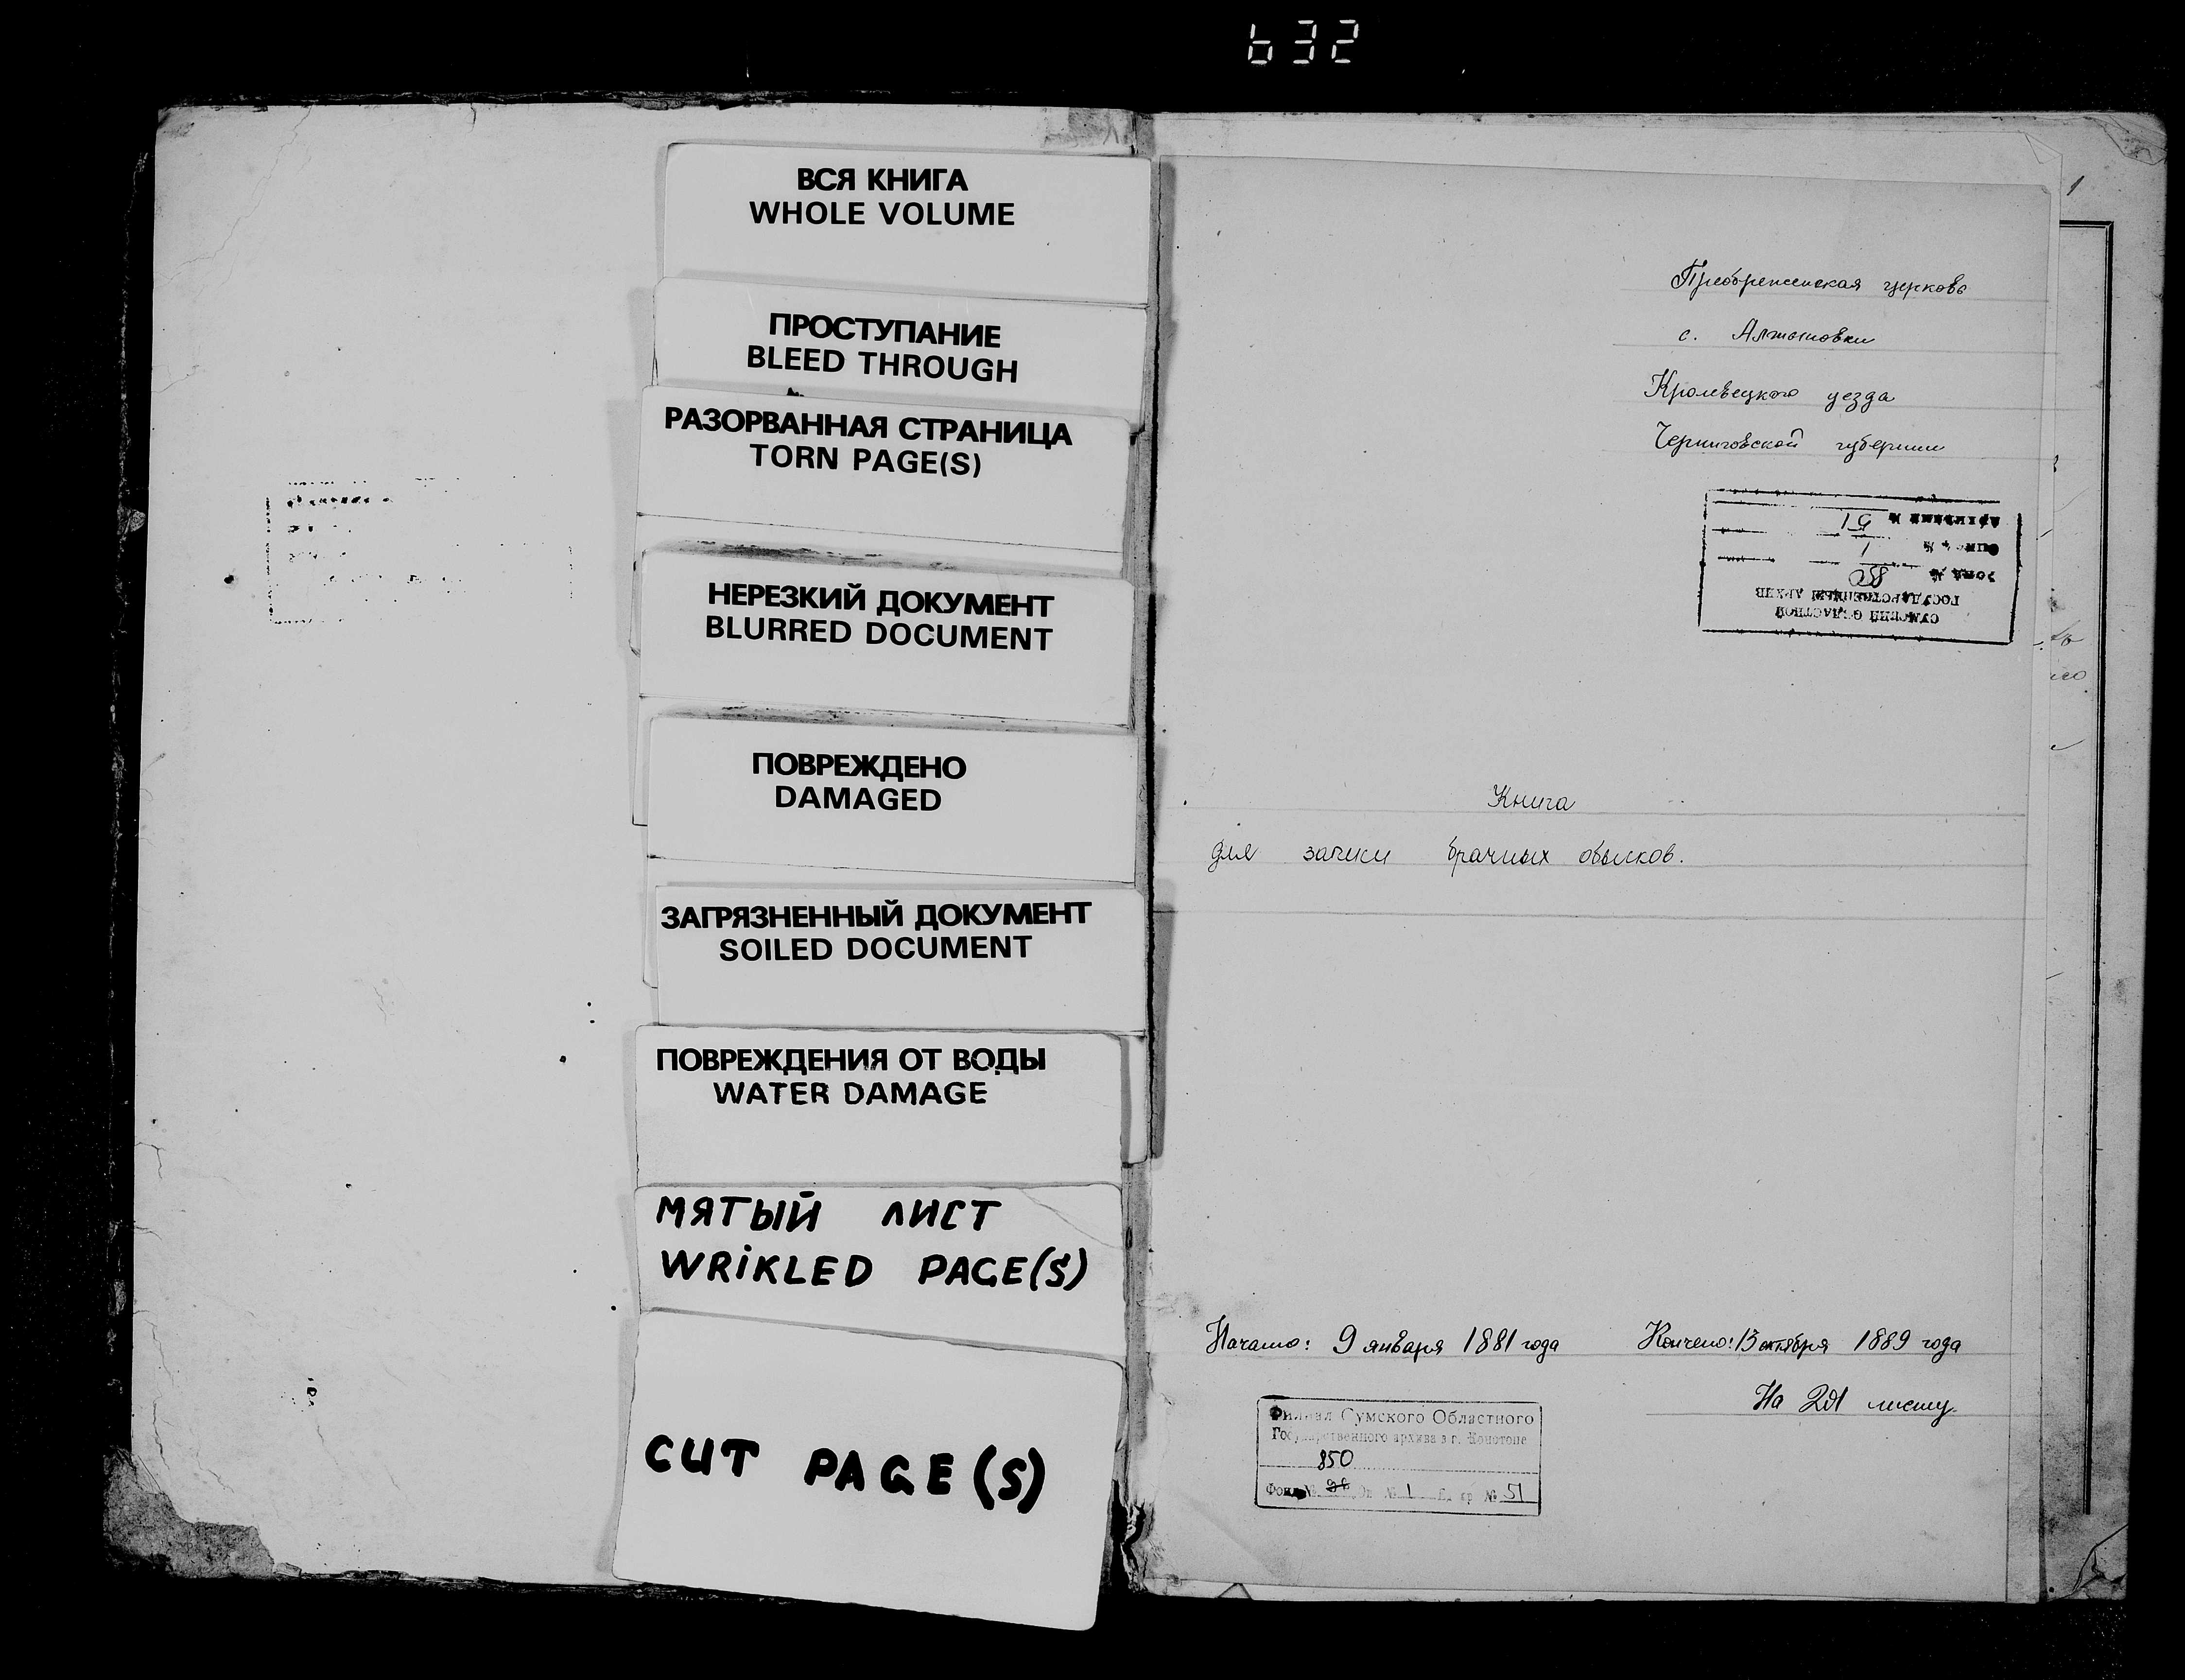 632
ВСЯ КНИГА
WHOLE VOLUME
ПРОСТУПАНИЕ
BLEED THROUGH
РАЗОРВАННАЯ СТРАНИЦА
TORN PAGE(S)
НЕРЕЗКИЙ ДОКУМЕНТ
BLURRED DOCUMENT
ПОВРЕЖДЕНО
DAMAGED
ЗАГРЯЗНЕННЫЙ ДОКУМЕНТ
SOILED DOCUMENT
ПОВРЕЖДЕНИЯ ОТ ВОДЫ
WATER DAMAGE
МЯТЫЙ ЛИСТ
WRIKLED PAGE(S)
CUT PAGE(S)
1
Преображенская церковь
с. Алтыновки
Кролевецкого уезда
Черниговской губернии
СУМСКИЙ ОБЛАСТНОЙ
ГОСУДАРСТВЕННЫЙ АРХИВ
ФОНД №
ОПИСЬ № 1
51
Книга
для записи брачных обысков.
Начато: 9 января 1881 года
Кончено: 13 октября 1889 года
На листу
Филиал Сумского Областного
Государственного архива в г. Конотопе
850
Фонд № Оп № 1 Ед. хр № 51